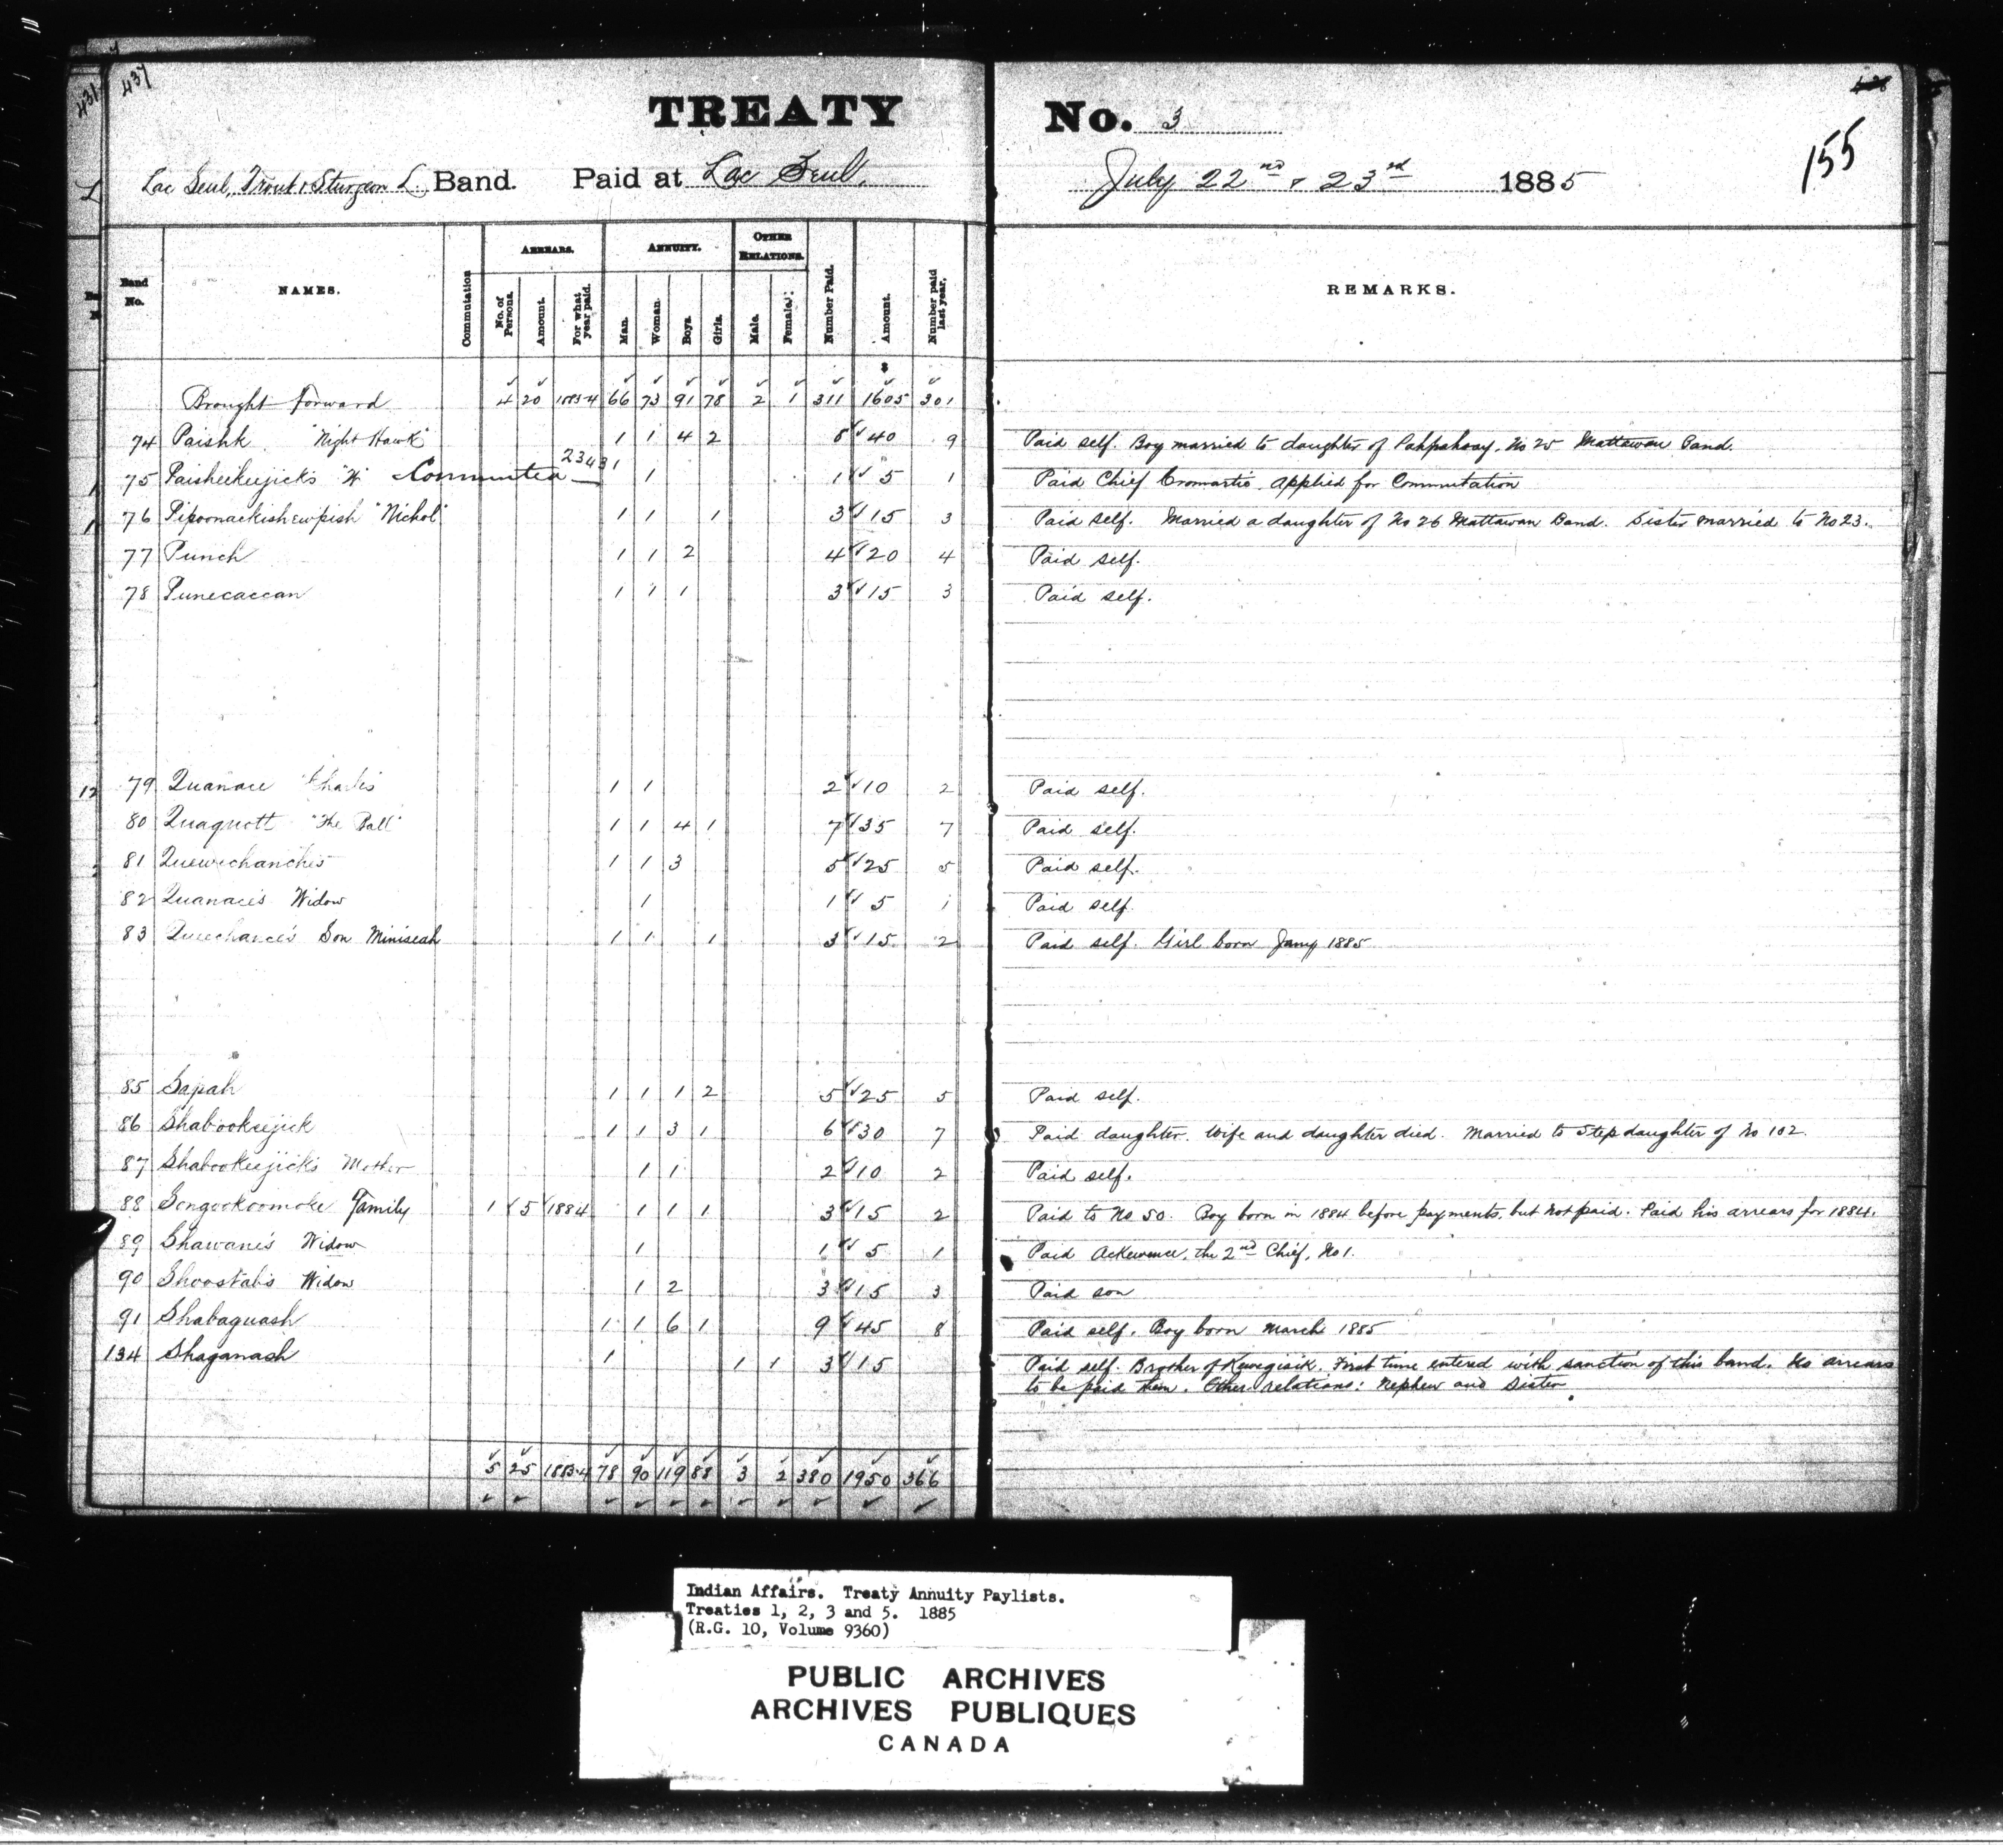 437
TREATY No. 3
155
Lac Seul, Trout & Sturgeon L. Band. Paid at Lac Seul. July 22nd & 23rd 1885
Band No. NAMES. Commutation ARREARS. No. of Persons. Amount. For what year paid. ANNUITY. Man. Woman. Boys. Girls. OTHER RELATIONS. Male. Female. Number Paid. Amount. Number paid last year. REMARKS.
$
Brought forward 4 20 1883-4 66 73 91 78 2 1 311 1605 301
74 Paishk "Night Hawk" 1 1 4 2 8 40 9 Paid self. Boy married to daughter of Pahpahoay, No 25 Mattawan Band.
75 Paisheekeejick's "W" Commuted 23431 1 1 5 1 Paid Chief Cromartie. Applied for Commutation
76 Pipoonackishewpish "Nichol" 1 1 1 3 15 3 Paid self. Married a daughter of No 26 Mattawan Band. Sister married to No 23.
77 Punch 1 1 2 4 20 4 Paid self.
78 Punecaccan 1 1 1 3 15 3 Paid self.
79 Quanace "Charles" 1 1 2 10 2 Paid self.
80 Quaquott "The Ball" 1 1 4 1 7 35 7 Paid self.
81 Quewechanches 1 1 3 5 25 5 Paid self.
82 Quanace's Widow 1 1 5 1 Paid self.
83 Son Miniseah 1 1 1 3 15 2 Paid self. Girl born Jany 1885
85 Sapah 1 1 1 2 5 25 5 Paid self.
86 Shabookeejick 1 1 3 1 6 30 7 Paid daughter. Wife and daughter died. Married to Step daughter of No 102.
87 Shabookeejick's Mother 1 1 2 10 2 Paid self.
88 Songookoomoke Family 1 5 1884 1 1 1 3 15 2 Paid to No 50. Boy born in 1884 before payments, but not paid. Paid his arrears for 1884.
89 Shawane's Widow 1 1 5 1 Paid Ackewence, the 2nd Chief, No 1.
90 Shoostab's Widow 1 2 3 15 3 Paid son
91 Shabaquash 1 1 6 1 9 45 8 Paid self. Boy born March 1885
134 Shaganash 1 1 1 3 15 Paid self. Brother of Kewegisik. First time entered with sanction of this band. No arrears
to be paid them. Other relations: Nephew and Sister.
5 25 1883-4 78 90 119 88 3 2 380 1950 366
Indian Affairs. Treaty Annuity Paylists.
Treaties 1, 2, 3 and 5. 1885
(R.G. 10, Volume 9360)
PUBLIC ARCHIVES
ARCHIVES PUBLIQUES
CANADA